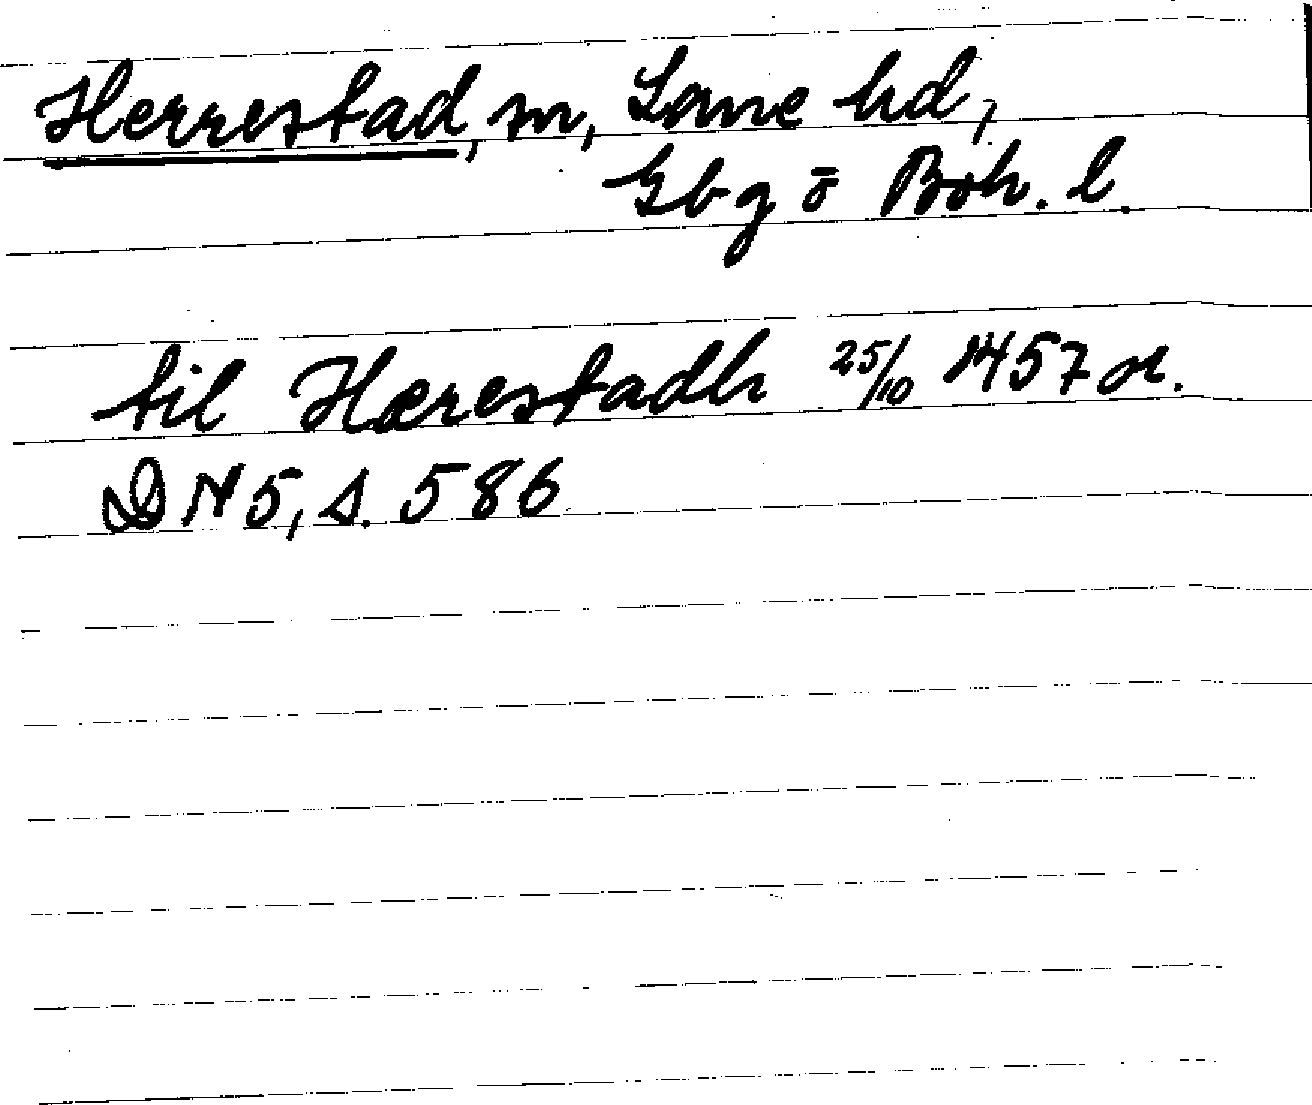 Herrestad, sn, Lane hd,
Gbg o Boh. l.
til Hærestadh 25/10 1457 or.
DN 5, s. 586